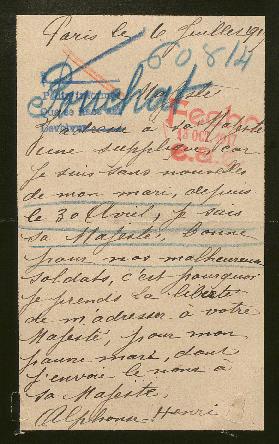 Paris le 6 Juillet 191
60814
Ponchat
Majesté
J'adresse à sa Majesté
une supplique car
je suis sans nouvelles
de mon mari, depuis
le 30 Avril, je sais
sa Majesté, bonne
pour nos malheureux
soldats, c'est pourquoi
je prends la liberté
de m'adresser à votre
Majesté, pour mon
pauvre mari, dont
j'envoie le nom à
sa Majesté,
Alphonse Henri